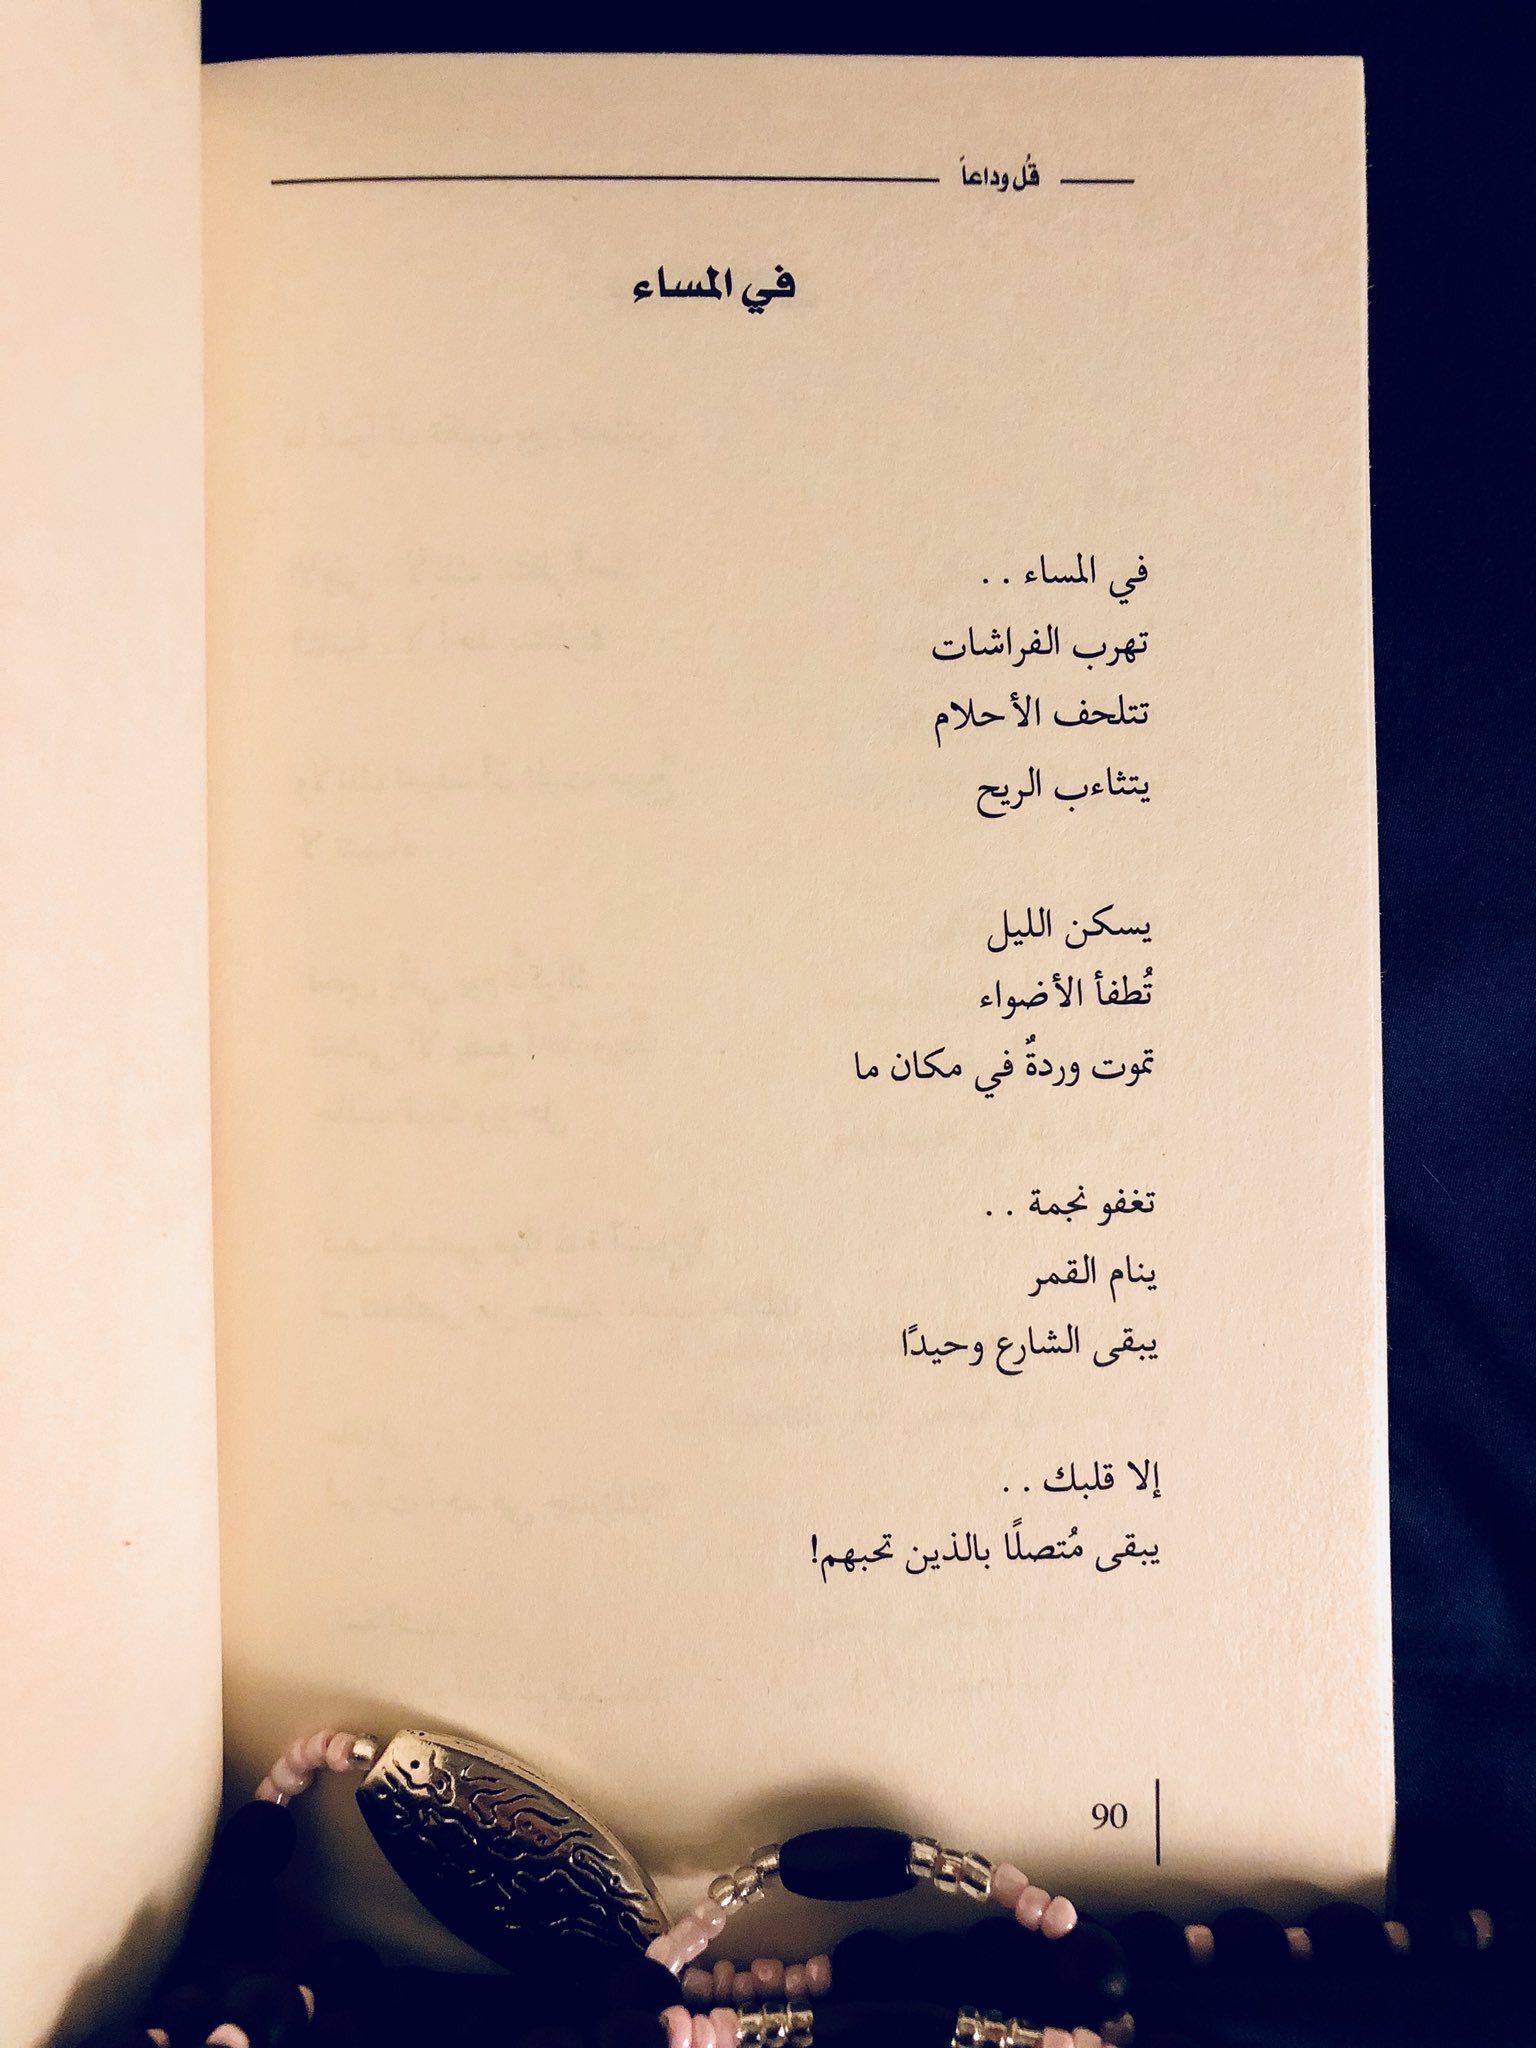 قُل وداعاً
في المساء
في المساء . .
تهرب الفراشات
تتلحف الأحلام
يتثاءب الريح
يسكن الليل
تُطفأ الأضواء
تموت وردةٌ في مكان ما
تغفو نجمة . .
ينام القمر
يبقى الشارع وحيدًا
إلا قلبك . .
يبقى مُتصلًا بالذين تحبهم!
90